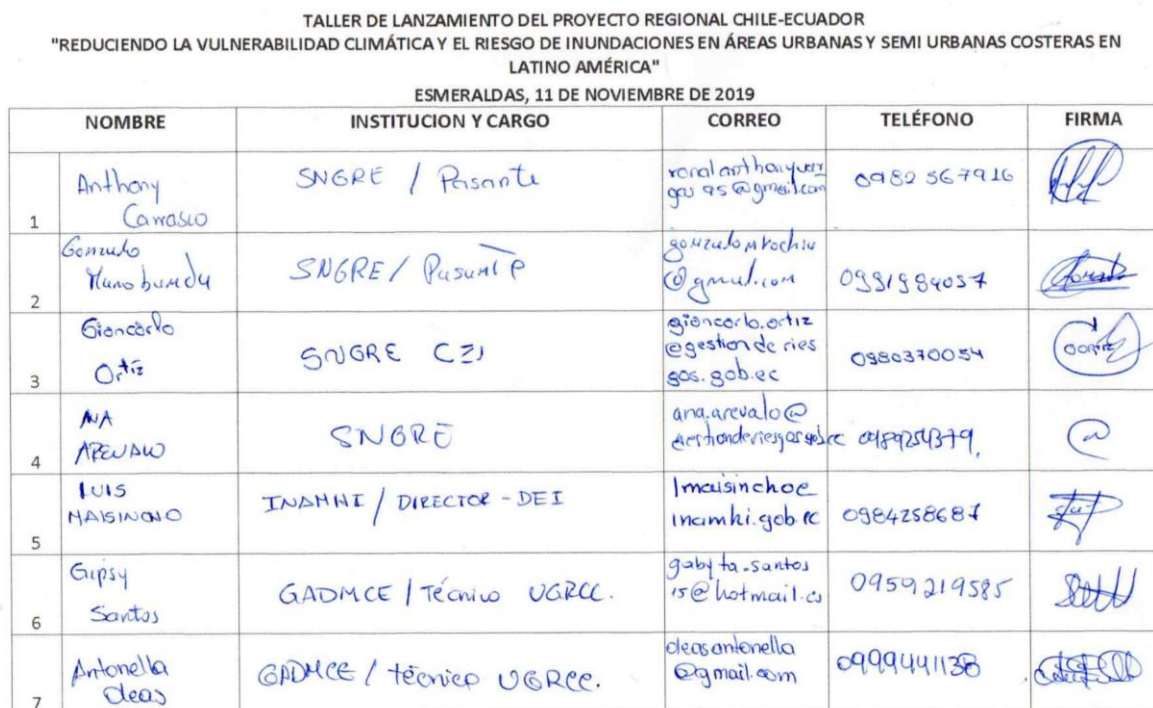 TALLER DE LANZAMIENTO DEL PROYECTO REGIONAL CHILE-ECUADOR
"REDUCIENDO LA VULNERABILIDAD CLIMÁTICA Y EL RIESGO DE INUNDACIONES EN ÁREAS URBANAS Y SEMI URBANAS COSTERAS EN
LATINO AMÉRICA"
ESMERALDAS, 11 DE NOVIEMBRE DE 2019
NOMBRE INSTITUCION Y CARGO CORREO TELÉFONO FIRMA
1
Anthony
Carrasco
SNGRE / Pasante
gas 95@gmail.com
0982 567916
2
Gonzalo
SNGRE / Pasante
0991984057
3
Giancarlo
Ortíz
SNGRE CZ1
giancarlo.ortiz
@gestion de ries
gos.gob.ec
0980370054
4
ANA
AREVALO
SNGRE
ana.arevalo@
gestionderiesgos.gob.ec
0989254379.
5
LUIS
MAISINCHO
INAMHI / DIRECTOR - DEI
lmaisincho@
inamhi.gob.ec
0984258687
6
Gipsy
Santos
GADMCE / Técnico UGRCC.
gabyta.santos
15@hotmail.es
0959219585
7
Antonella
Oleas
GADMCE / técnico UGRCC.
oleasantonella
@gmail.com
0999441138